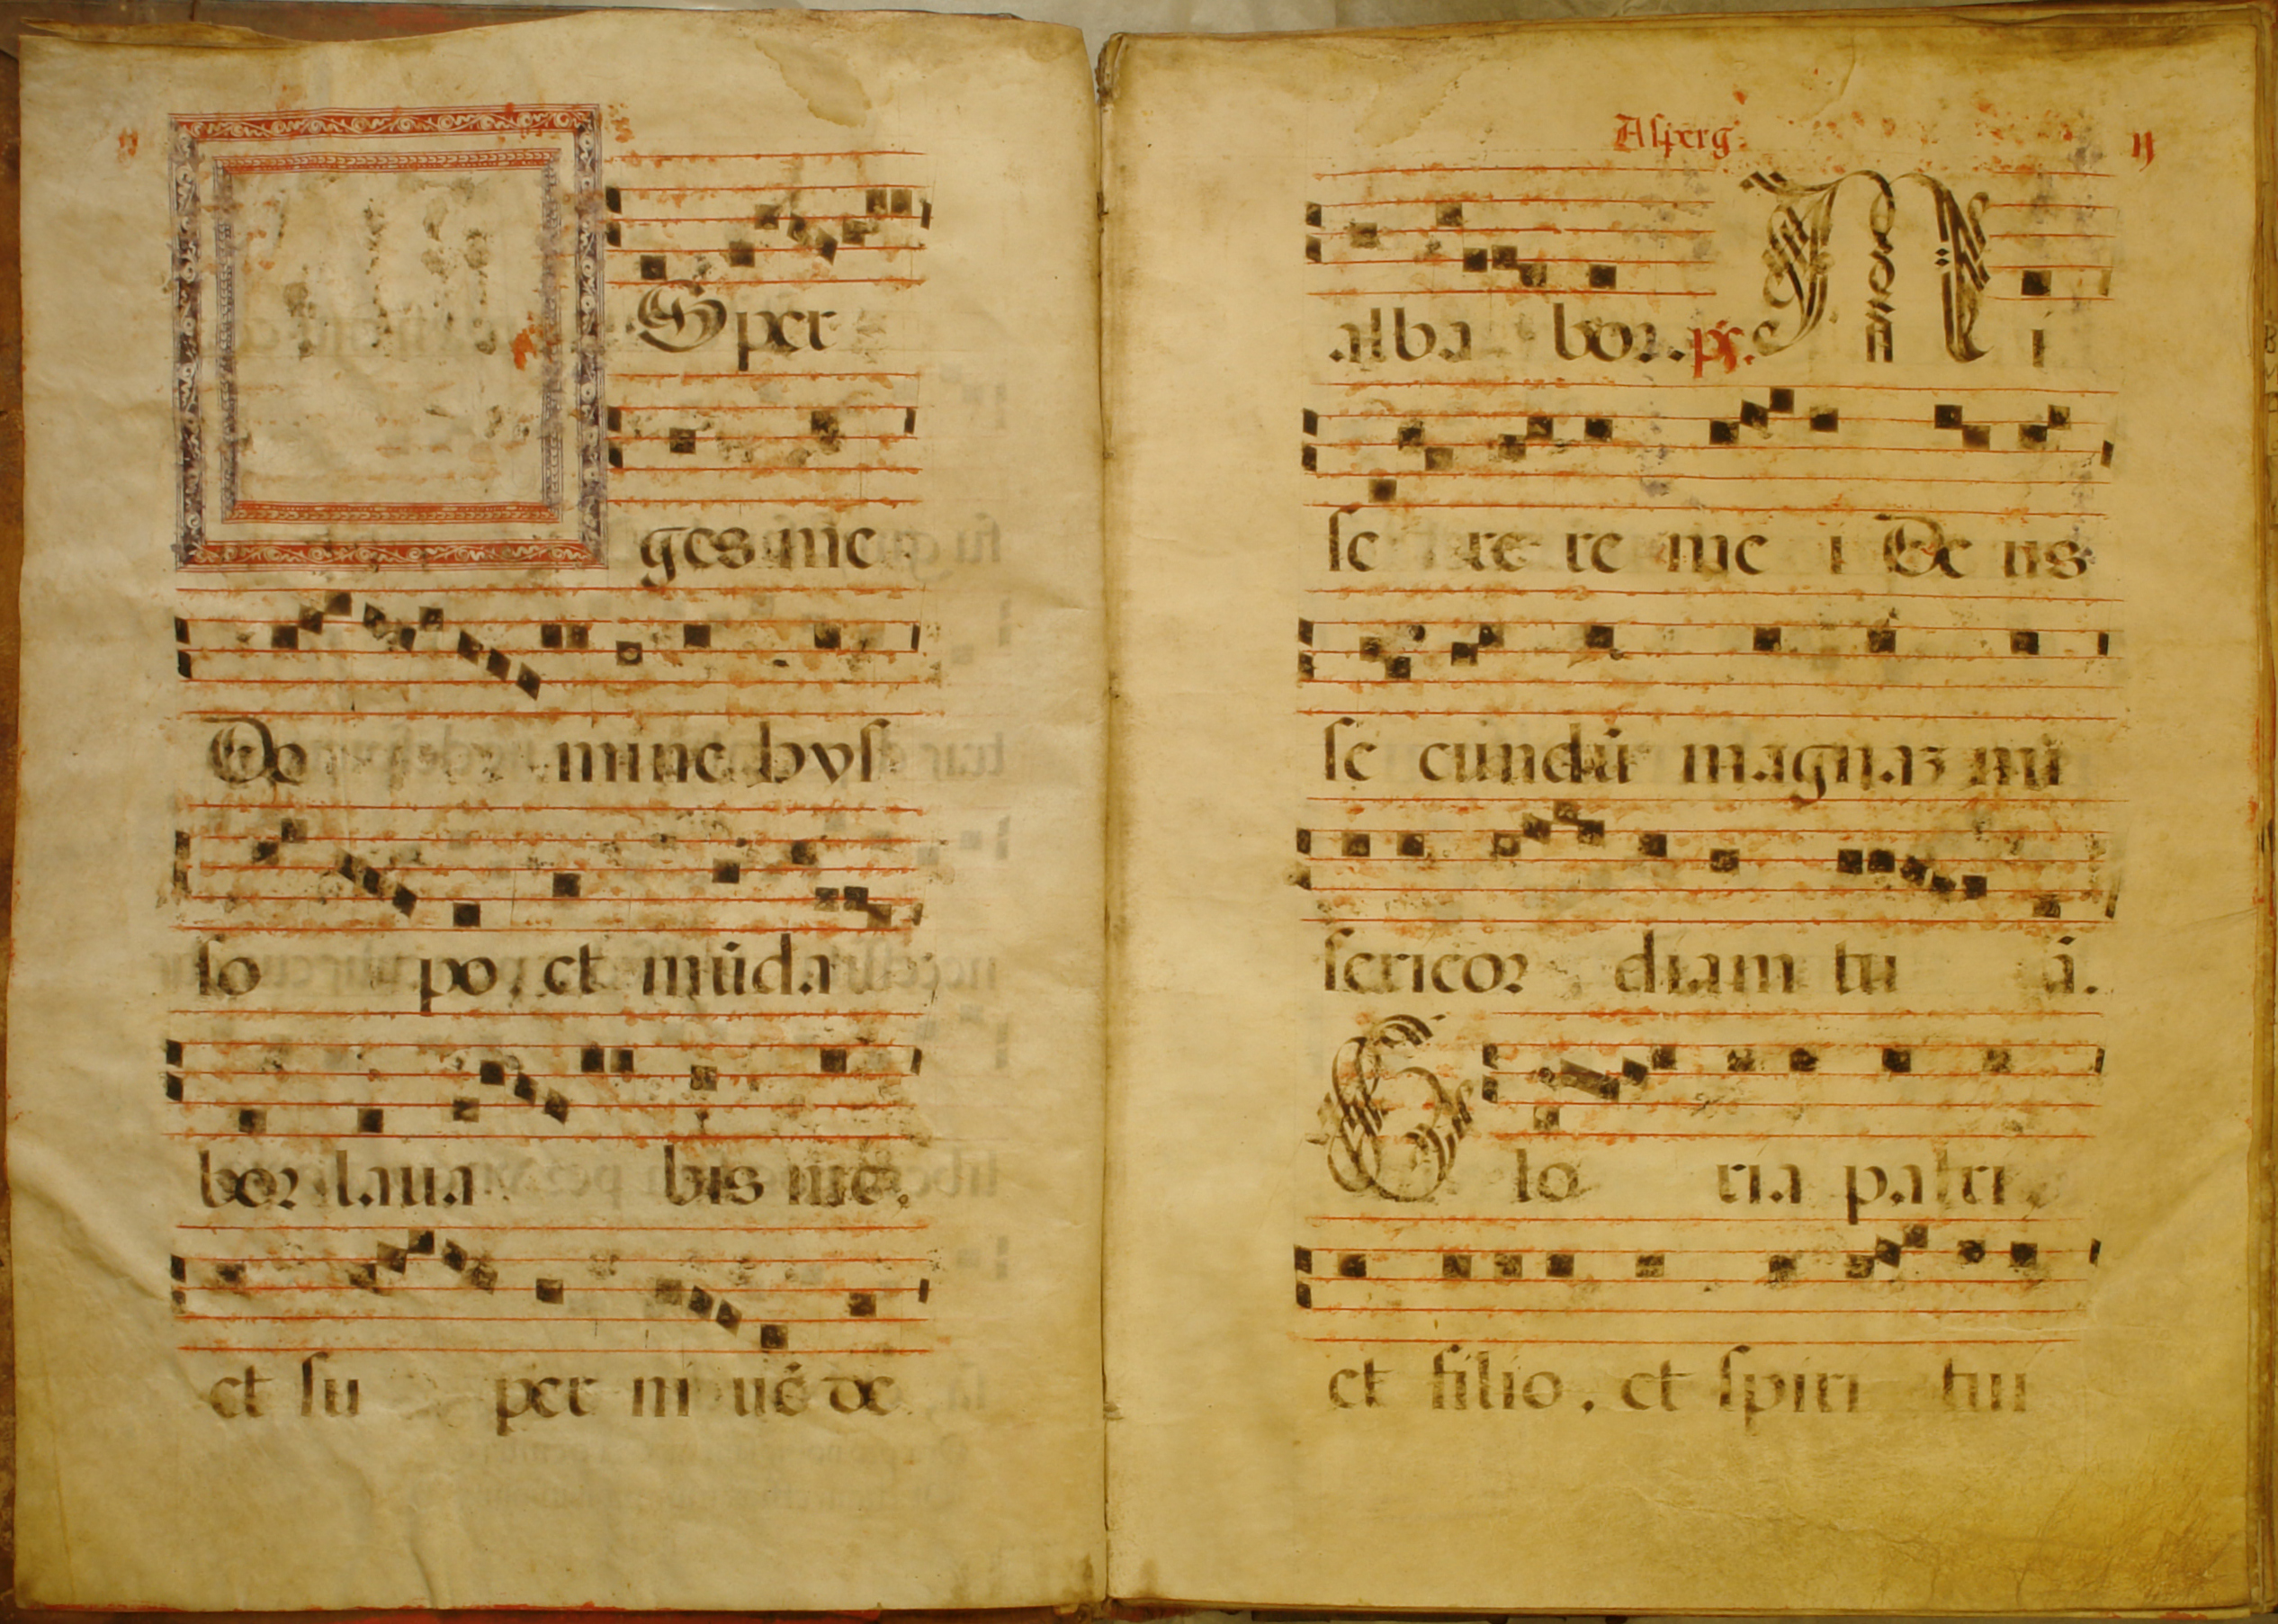 Sper
ges me
Do mine hyſ
ſo po, et mūda
bor laua bis me,
et ſu per ni uē de
Aſperg
alba bor. ps. M i
ſe re re me i De us
ſe cundū magnaz mi
ſericor diam tu ā.
G lo ria patri,
et filio, et ſpiri tui